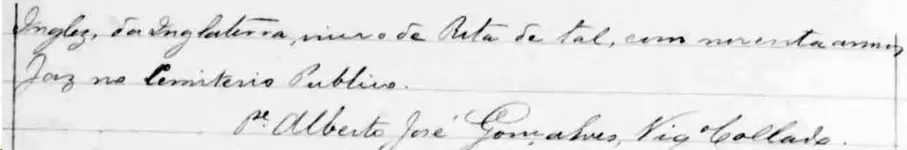 Inglez, da Inglaterra, viuvo de Rita de tal, com noventa annos
Jaz no Cemiterio Publico.
Pe. Alberto José Gonçalves, Vigº Collado.